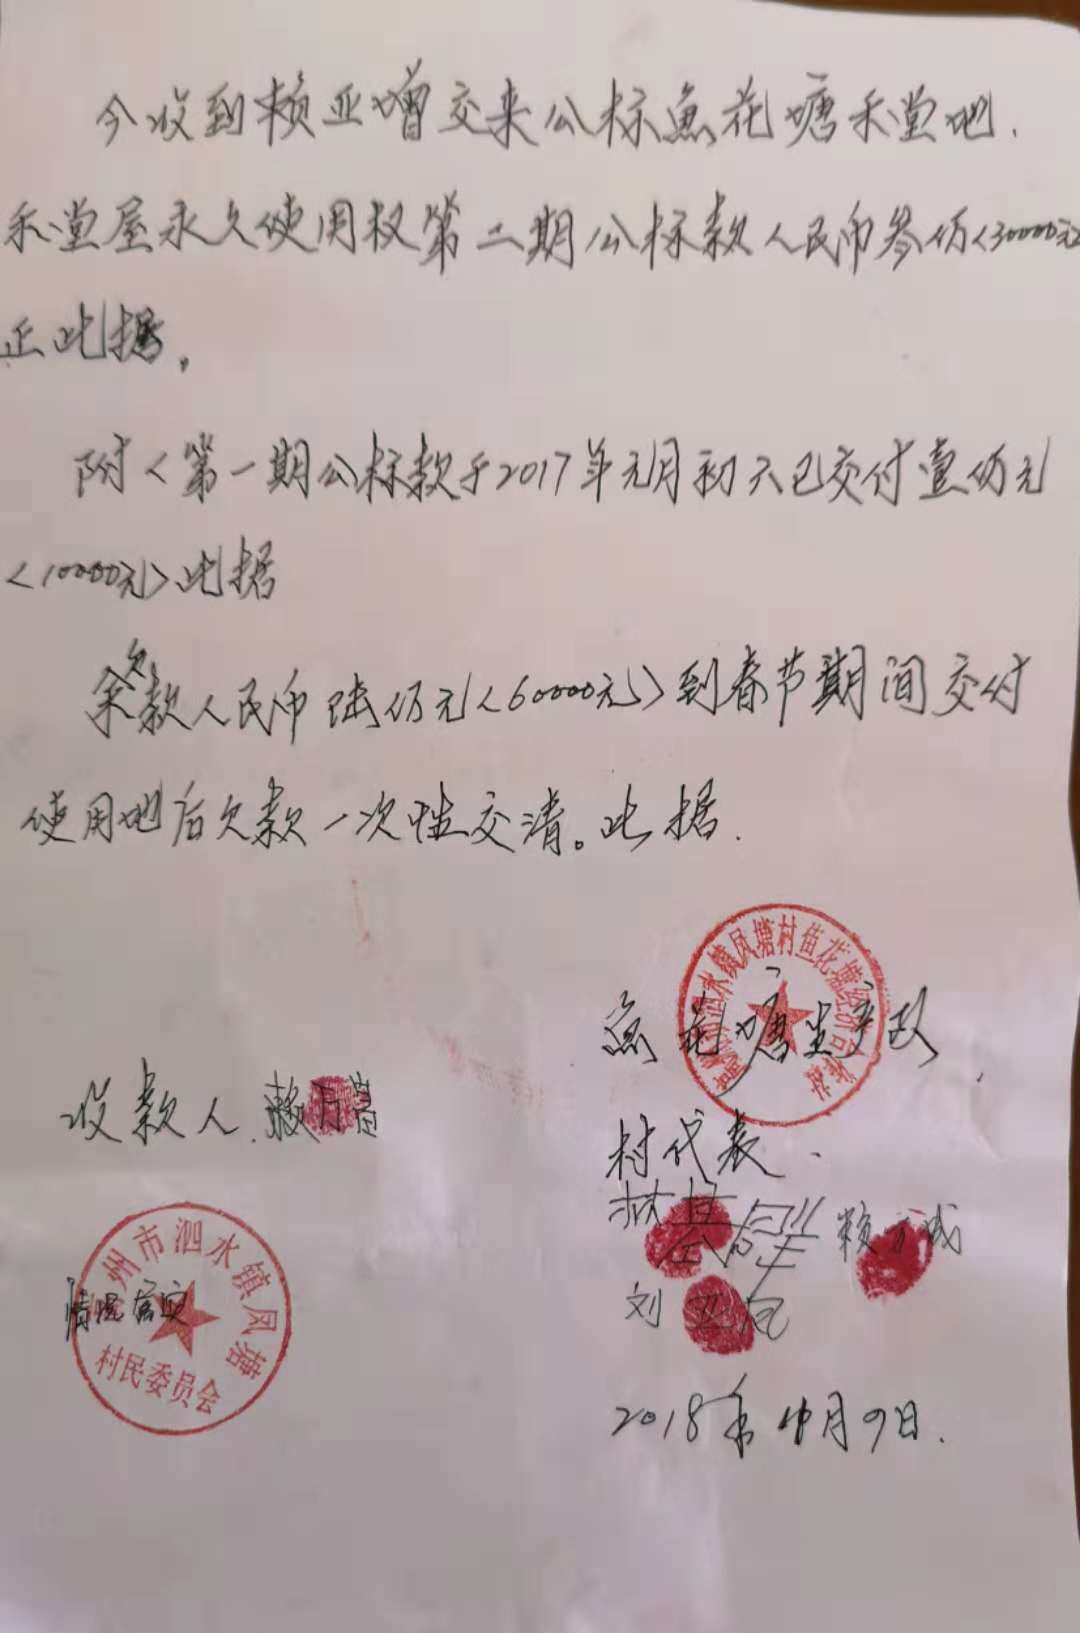 今收到赖亚增交来公标鱼花塘禾堂地.
禾堂屋永久使用权第二期公标款人民币叁仟<30000元>
正此据。
附<第一期公标款于2017年元月初六已交付壹仟元
<10000元>此据
余欠款人民币陆仟元<60000元>到春节期间交付
使用地后欠款一次性交清。此据.
泗水镇凤塘村鱼花塘经济合作社
鱼花塘生产队
收款人.赖
村代表.
林
赖 成
刘亚凤
州市泗水镇凤塘
村民委员会
情况属实
2018年 月9日.